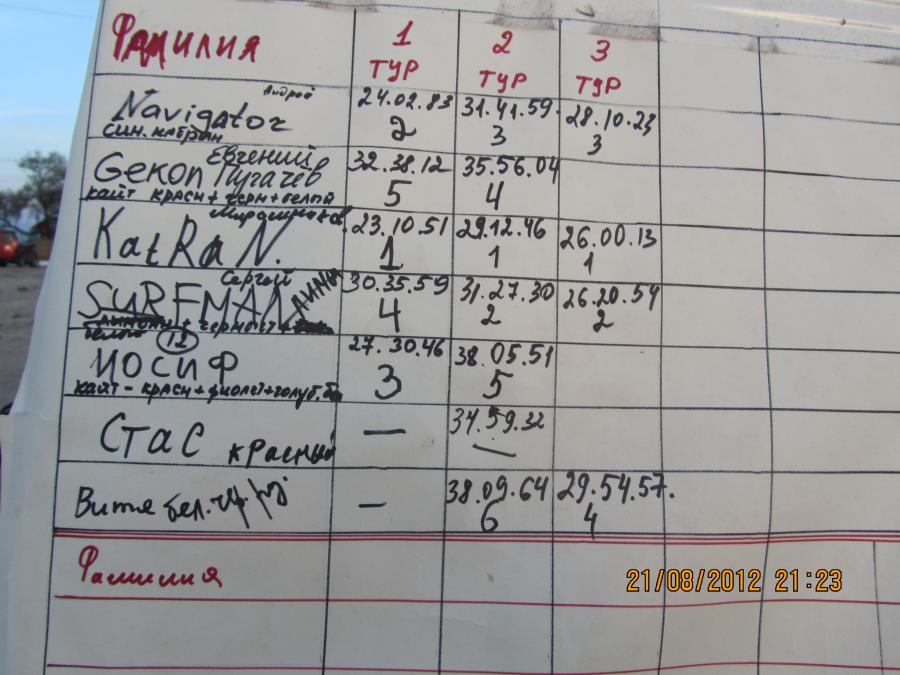 Фамилия 1 ТУР 2 ТУР 3 ТУР
Navigator Андрей 24.02.83 31.41.59 28.10.23
син. катран 2 3 3
Gекоп Евгений Пугачёв 32.38.12 35.56.04
кайт красн + черн + белый 5 4
KatRaN. 23.10.51 29.12.46 26.00.13
1 1 1
SURFMAN Сергей 30.35.59 31.27.30 26.20.54
4 2 2
белый 12
ИОСИФ 27.30.46 38.05.51
кайт - красн + фиолет + голуб. 3 5
Стас красный — 34.59.32
—
Витя бел. — 38.09.64 29.54.57.
6 4
Фамилия
21/08/2012 21:23